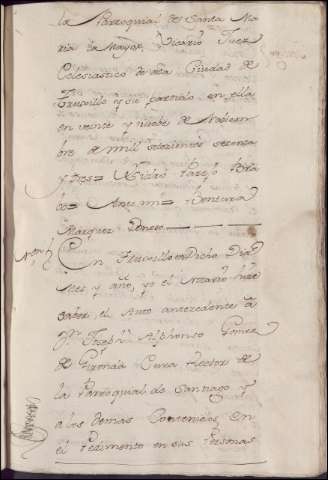 la Parroquial de Santa Ma
ria la Mayor, Vicario Juez
Eclesiastico de esta Ciudad de
Truxillo y su partido en ella
en veinte y nueve de Noviem
bre de mil setecientos setenta
y tres= Ysidro Parejo Bola
ños= Ante mi= Bentura
Marquez Donoso
En Truxillo en dicho Dia
Mes y año, yo el Notario hize
saver el Auto antecedente a
Dn. Joseph Alphonso Gomez
de Cura Rector de
la Parroquial de Santiago y
a los demas Contenidos en
el Pedimento en sus Personas